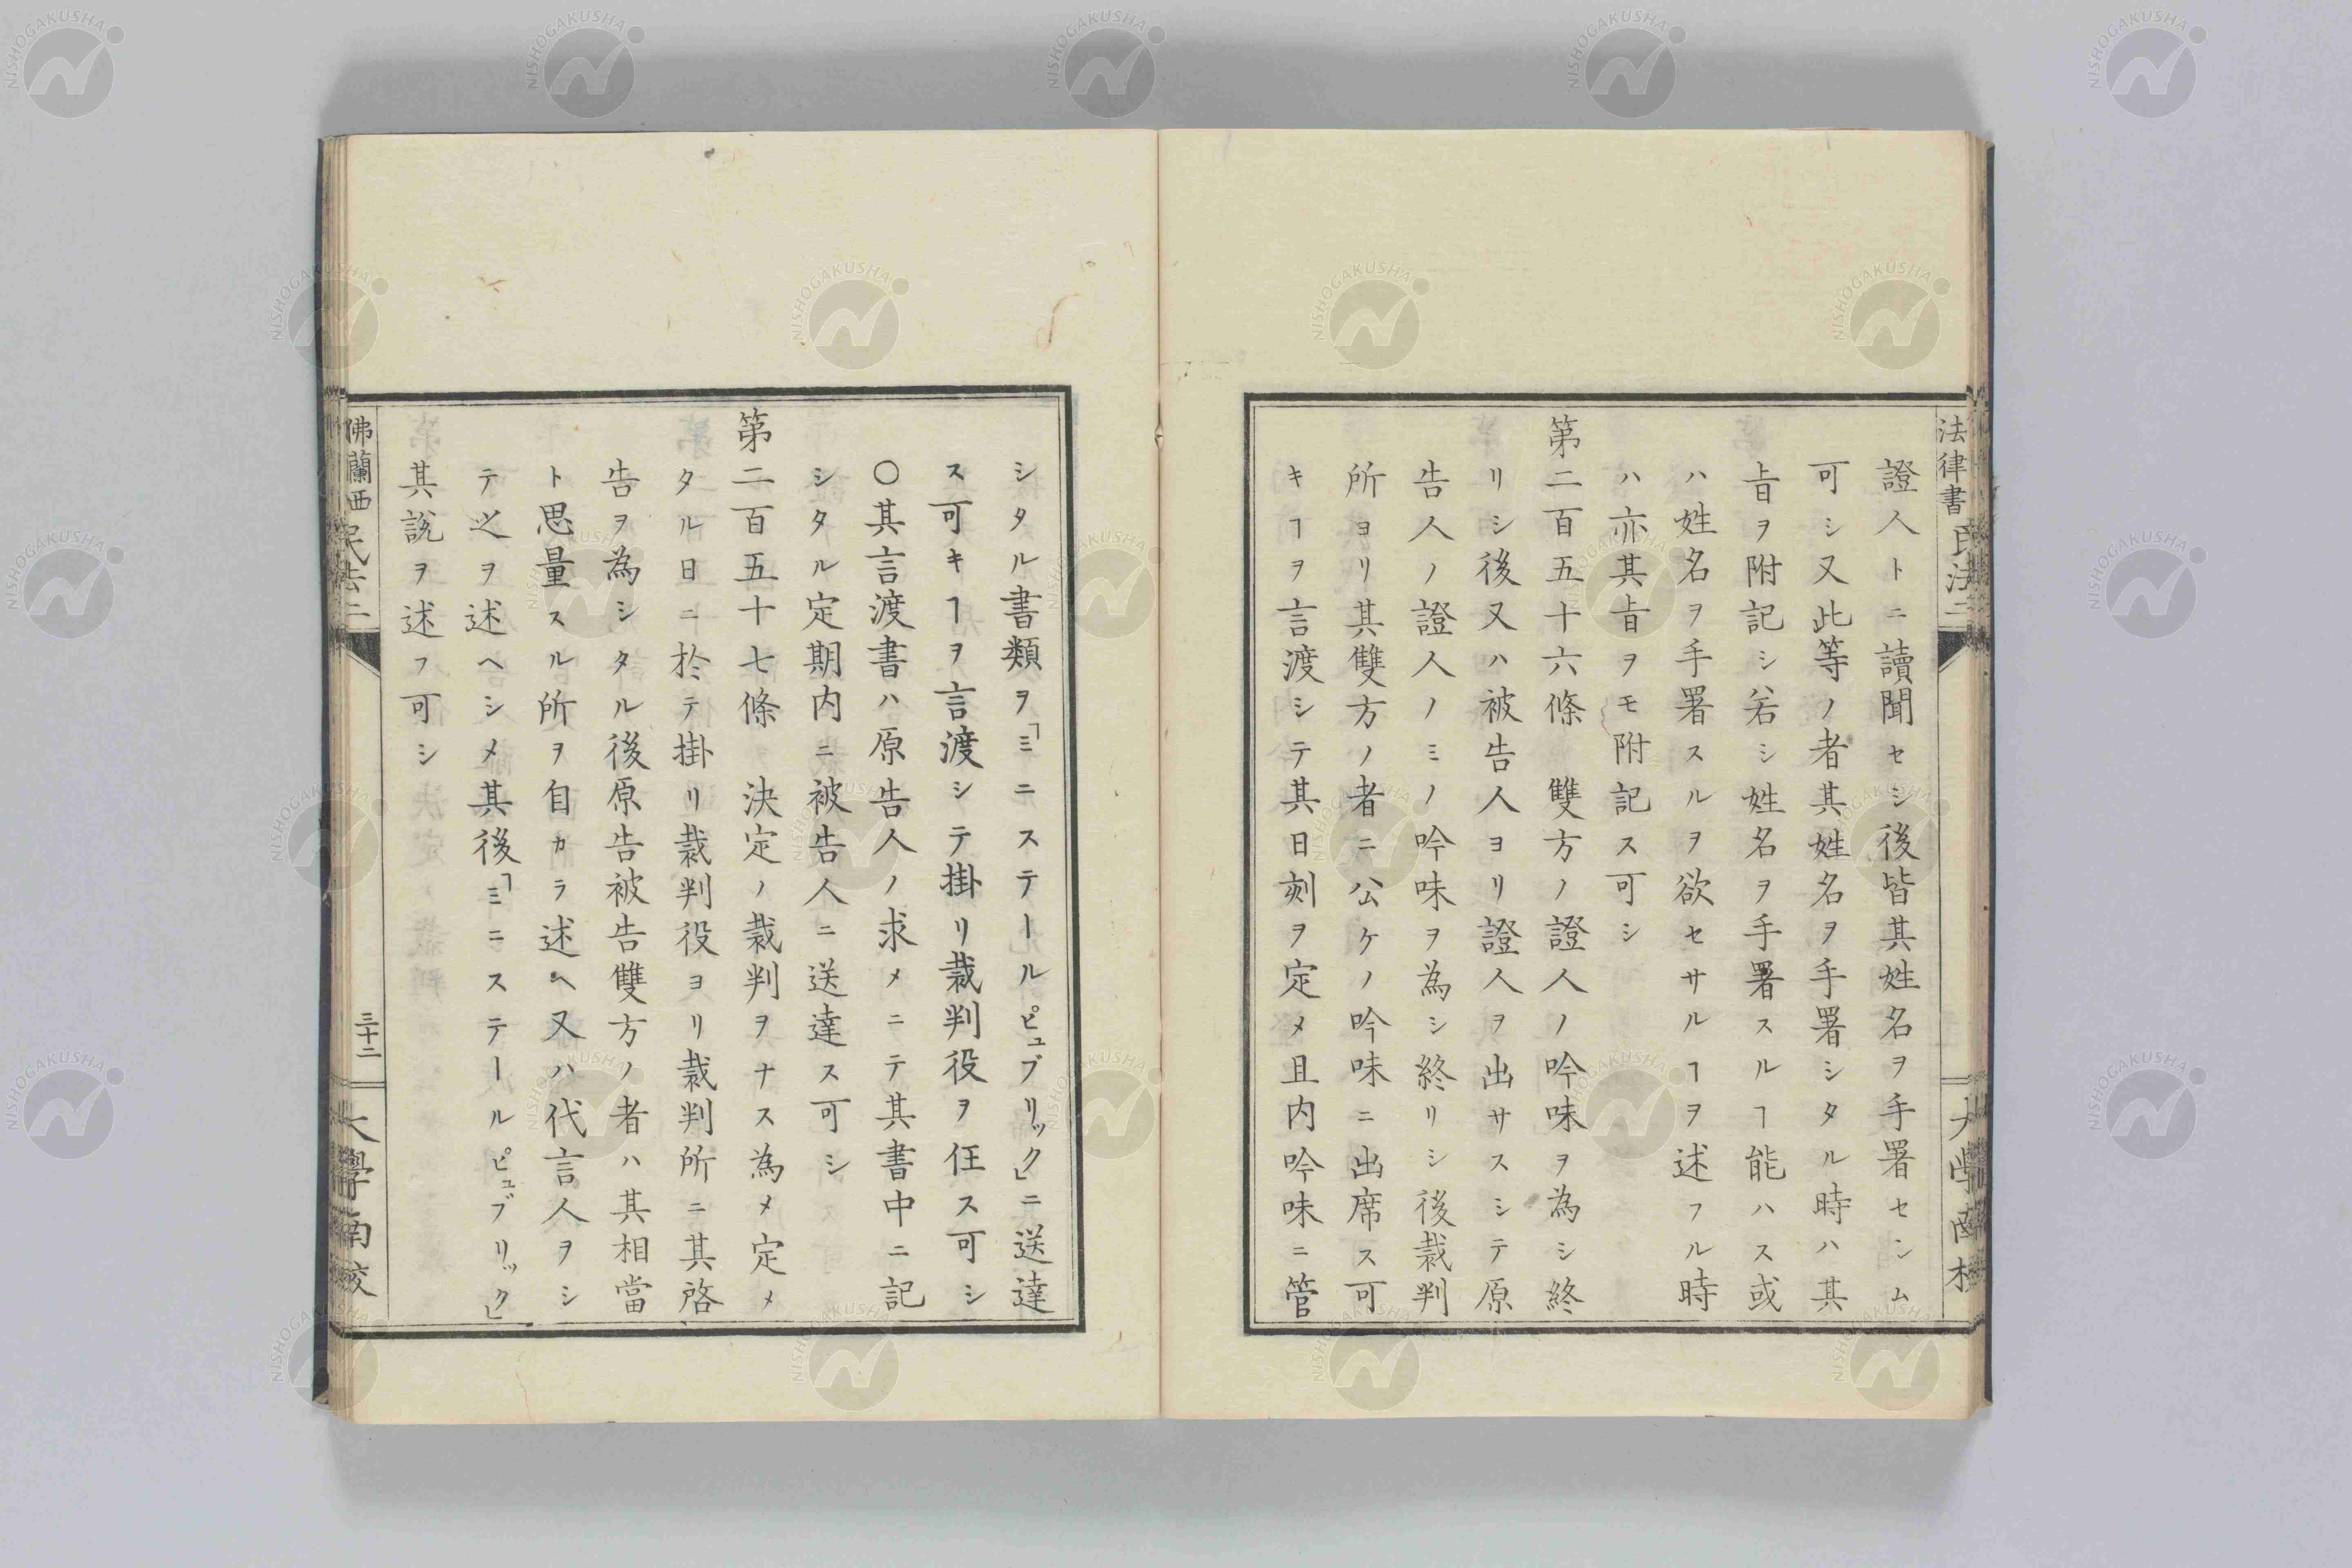 法律書 民法二
證人トニ讀聞セシ後皆其姓名ヲ手署センム
可シ又此等ノ者其姓名ヲ手署シタル時ハ其
旨ヲ附記シ若シ姓名ヲ手署スルヿ能ハス或
ハ姓名ヲ手署スルヲ欲セサルヿヲ述フル時
ハ亦其旨ヲモ附記ス可シ
第二百五十六條 雙方ノ證人ノ吟味ヲ為シ終
リシ後又ハ被告人ヨリ證人ヲ出サスシテ原
告人ノ證人ノミノ吟味ヲ為シ終リシ後裁判
所ヨリ其雙方ノ者ニ公ケノ吟味ニ出席ス可
キヿヲ言渡シテ其日刻ヲ定メ且内吟味ニ管
シタル書類ヲ「ミニステールピュブリック」ニ送達
ス可キヿヲ言渡シテ掛リ裁判役ヲ任ス可シ
○其言渡書ハ原告人ノ求メニテ其書中ニ記
シタル定期内ニ被告人ニ送達ス可シ
第二百五十七條 決定ノ裁判ヲナス為メ定メ
タル日ニ於テ掛リ裁判役ヨリ裁判所ニ其啓
告ヲ為シタル後原告被告雙方ノ者ハ其相當
ト思量スル所ヲ自カラ述ヘ又ハ代言人ヲシ
テ之ヲ述ヘシメ其後「ミニステールピュブリック」
其說ヲ述フ可シ
佛蘭西民法二
三十二
大學南校
NISHOGAKUSHA